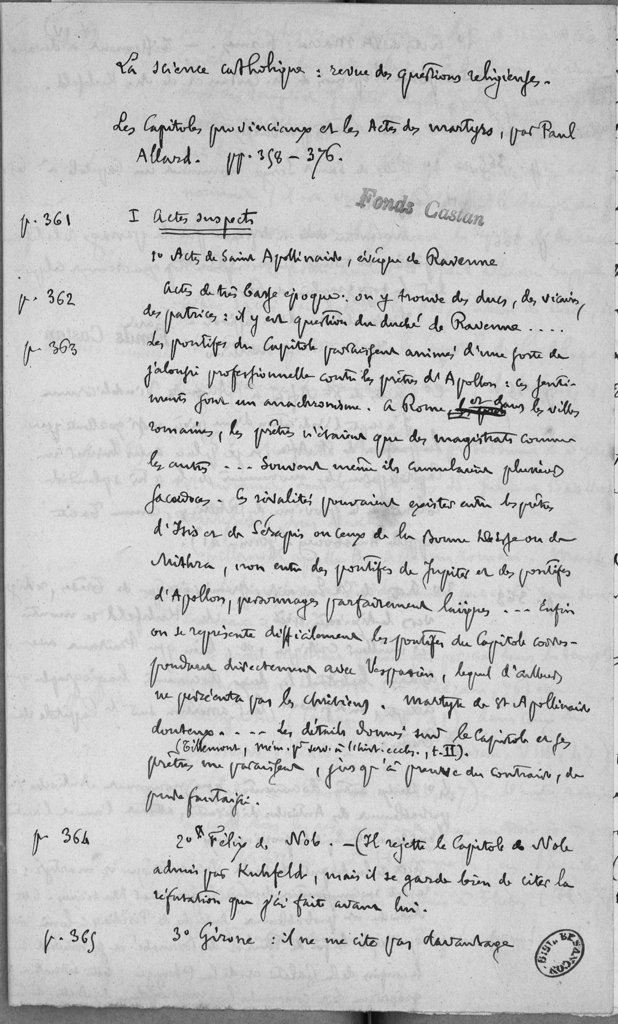 La science catholique : revue des questions religieuses.
Les Capitoles provinciaux et les Actes des martyrs, par Paul
Allard. pp. 358 – 376.
Fonds Castan
p. 361 I Actes suspects
1o Actes de Saint Apollinaire, évêque de Ravenne
p. 362 Actes de très basse époque : on y trouve des ducs, des vicaires,
des patrices : il y est question du duché de Ravenne ....
p. 363 Les pontifes du Capitole paraissent animés d'une sorte de
jalousie professionnelle contre les prêtres d'Apollon : ces senti-
ments sont un anachronisme. A Rome, et dans les villes
romaines, les prêtres n'étaient que des magistrats comme
les autres ... Souvent même ils cumulaient plusieurs
sacerdoces. Ces rivalités pouvaient exister entre les prêtres
d'Isis et de Sérapis ou ceux de la Bonne Déesse ou de
Mithra, non entre des pontifes de Jupiter et des pontifes
d'Apollon, personnages parfaitement laïques ... Enfin
on se représente difficilement les pontifes du Capitole corres-
pondant directement avec Vespasien, lequel d'ailleurs
ne persécuta pas les chrétiens. Martyre de St Apollinaire
douteux. .... Les détails donnés sur le Capitole et ses
(Tillemont, Mém. pr serv. à l'hist. eccles., t. II).
prêtres me paraissent, jusqu'à preuve du contraire, de
pure fantaisie.
p. 364 2o Félix de Nole. – (Il rejette le Capitole de Nole
admis par Kuhfeldt, mais il se garde bien de citer la
réfutation que j'ai faite avant lui.
p. 365 3o Girone : il ne me cite pas davantage
BIBL. BESANÇON